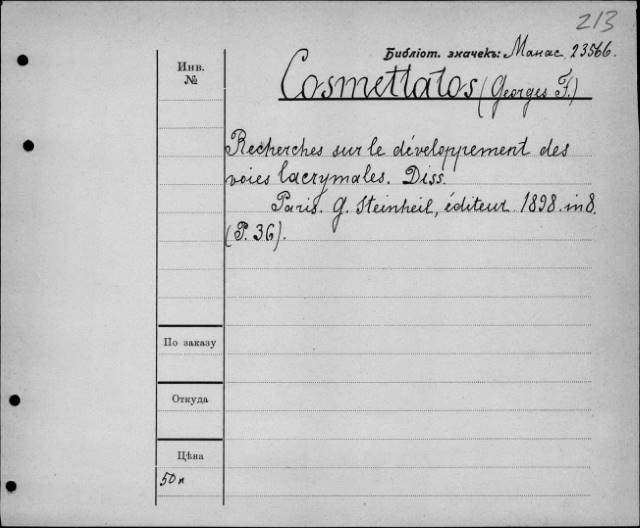 213
Библіот. значекъ: Манас. 23566.
Инв.
№
Cosmettatos (Georges F.)
Recherches sur le développement des
voies lacrymales. Diss.
Paris. G. Steinheil, éditeur 1898. in 8.
(P. 36).
По заказу
Откуда
Цѣна
50к